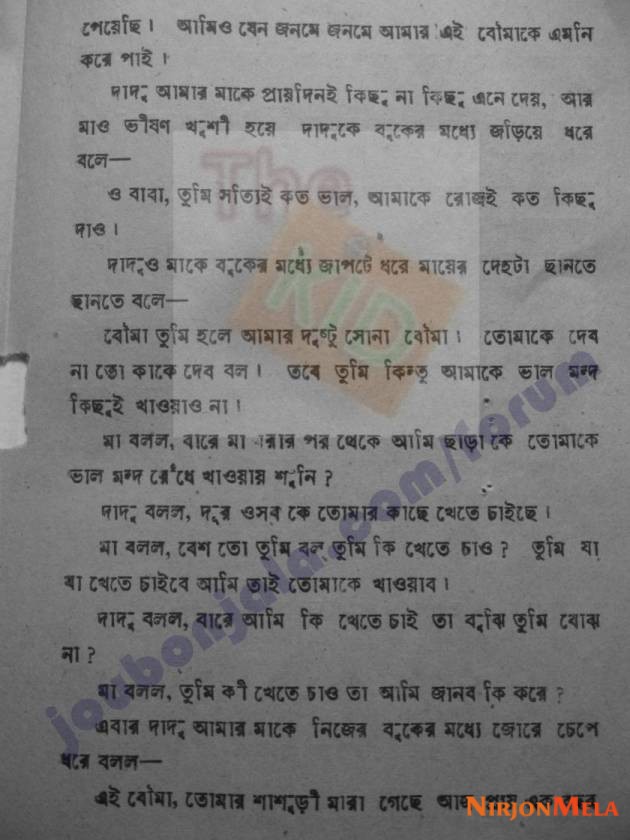 পেয়েছি। আমিও যেন জনমে জনমে আমার এই বৌমাকে এমনি
করে পাই।
দাদু আমার মাকে প্রায়দিনই কিছু না কিছু এনে দেয়, আর
মাও ভীষণ খুশী হয়ে দাদুকে বুকের মধ্যে জড়িয়ে ধরে
বলে—
ও বাবা, তুমি সত্যিই কত ভাল, আমাকে রোজই কত কিছু
দাও।
দাদুও মাকে বুকের মধ্যে জাপটে ধরে মায়ের দেহটা ছানতে
ছানতে বলে—
বৌমা তুমি হলে আমার দুষ্টু সোনা বৌমা। তোমাকে দেব
না তো কাকে দেব বল। তবে তুমি কিন্তু আমাকে ভাল মন্দ
কিছুই খাওয়াও না।
মা বলল, বারে মা পর থেকে আমি ছাড়া কে তোমাকে
ভাল মন্দ রেঁধে খাওয়ায় শুনি?
দাদু বলল, দূর ওসব কে তোমার কাছে খেতে চাইছে।
মা বলল, বেশ তো তুমি বল তুমি কি খেতে চাও? তুমি যা
যা খেতে চাইবে আমি তাই তোমাকে খাওয়াব।
দাদু বলল, বারে আমি কি খেতে চাই তা বুঝি তুমি বোঝ
না?
মা বলল, তুমি কী খেতে চাও তা আমি জানব কি করে?
এবার দাদু আমার মাকে নিজের বুকের মধ্যে জোরে চেপে
ধরে বলল—
এই বৌমা, তোমার শাশুড়ী মারা গেছে
The
KID
joubonjala.com/forum
NIRJONMELA